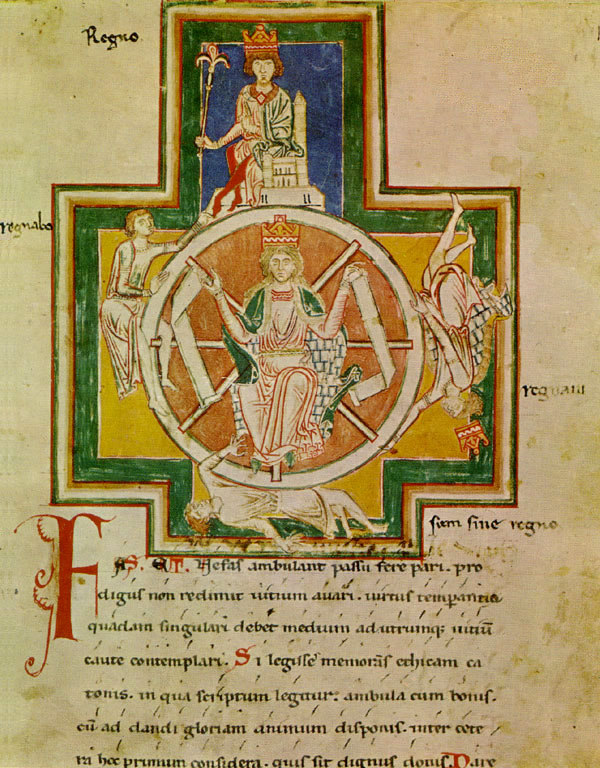 Regno
regnabo
regnaui
sum sine regno
FAS. ET. Nefas ambulant passu fere pari. pro
digus non redimit uitium auari. uirtus temperantia
quadam singulari debet medium ad utrumq; uitiū
caute contemplari. Si legisse memoras ethicam ca
tonis. in qua scriptum legitur. ambula cum bonis.
cū ad dandi gloriam animum disponis. inter cete
ra hoc primum considera. quis sit dignus donis. Dare